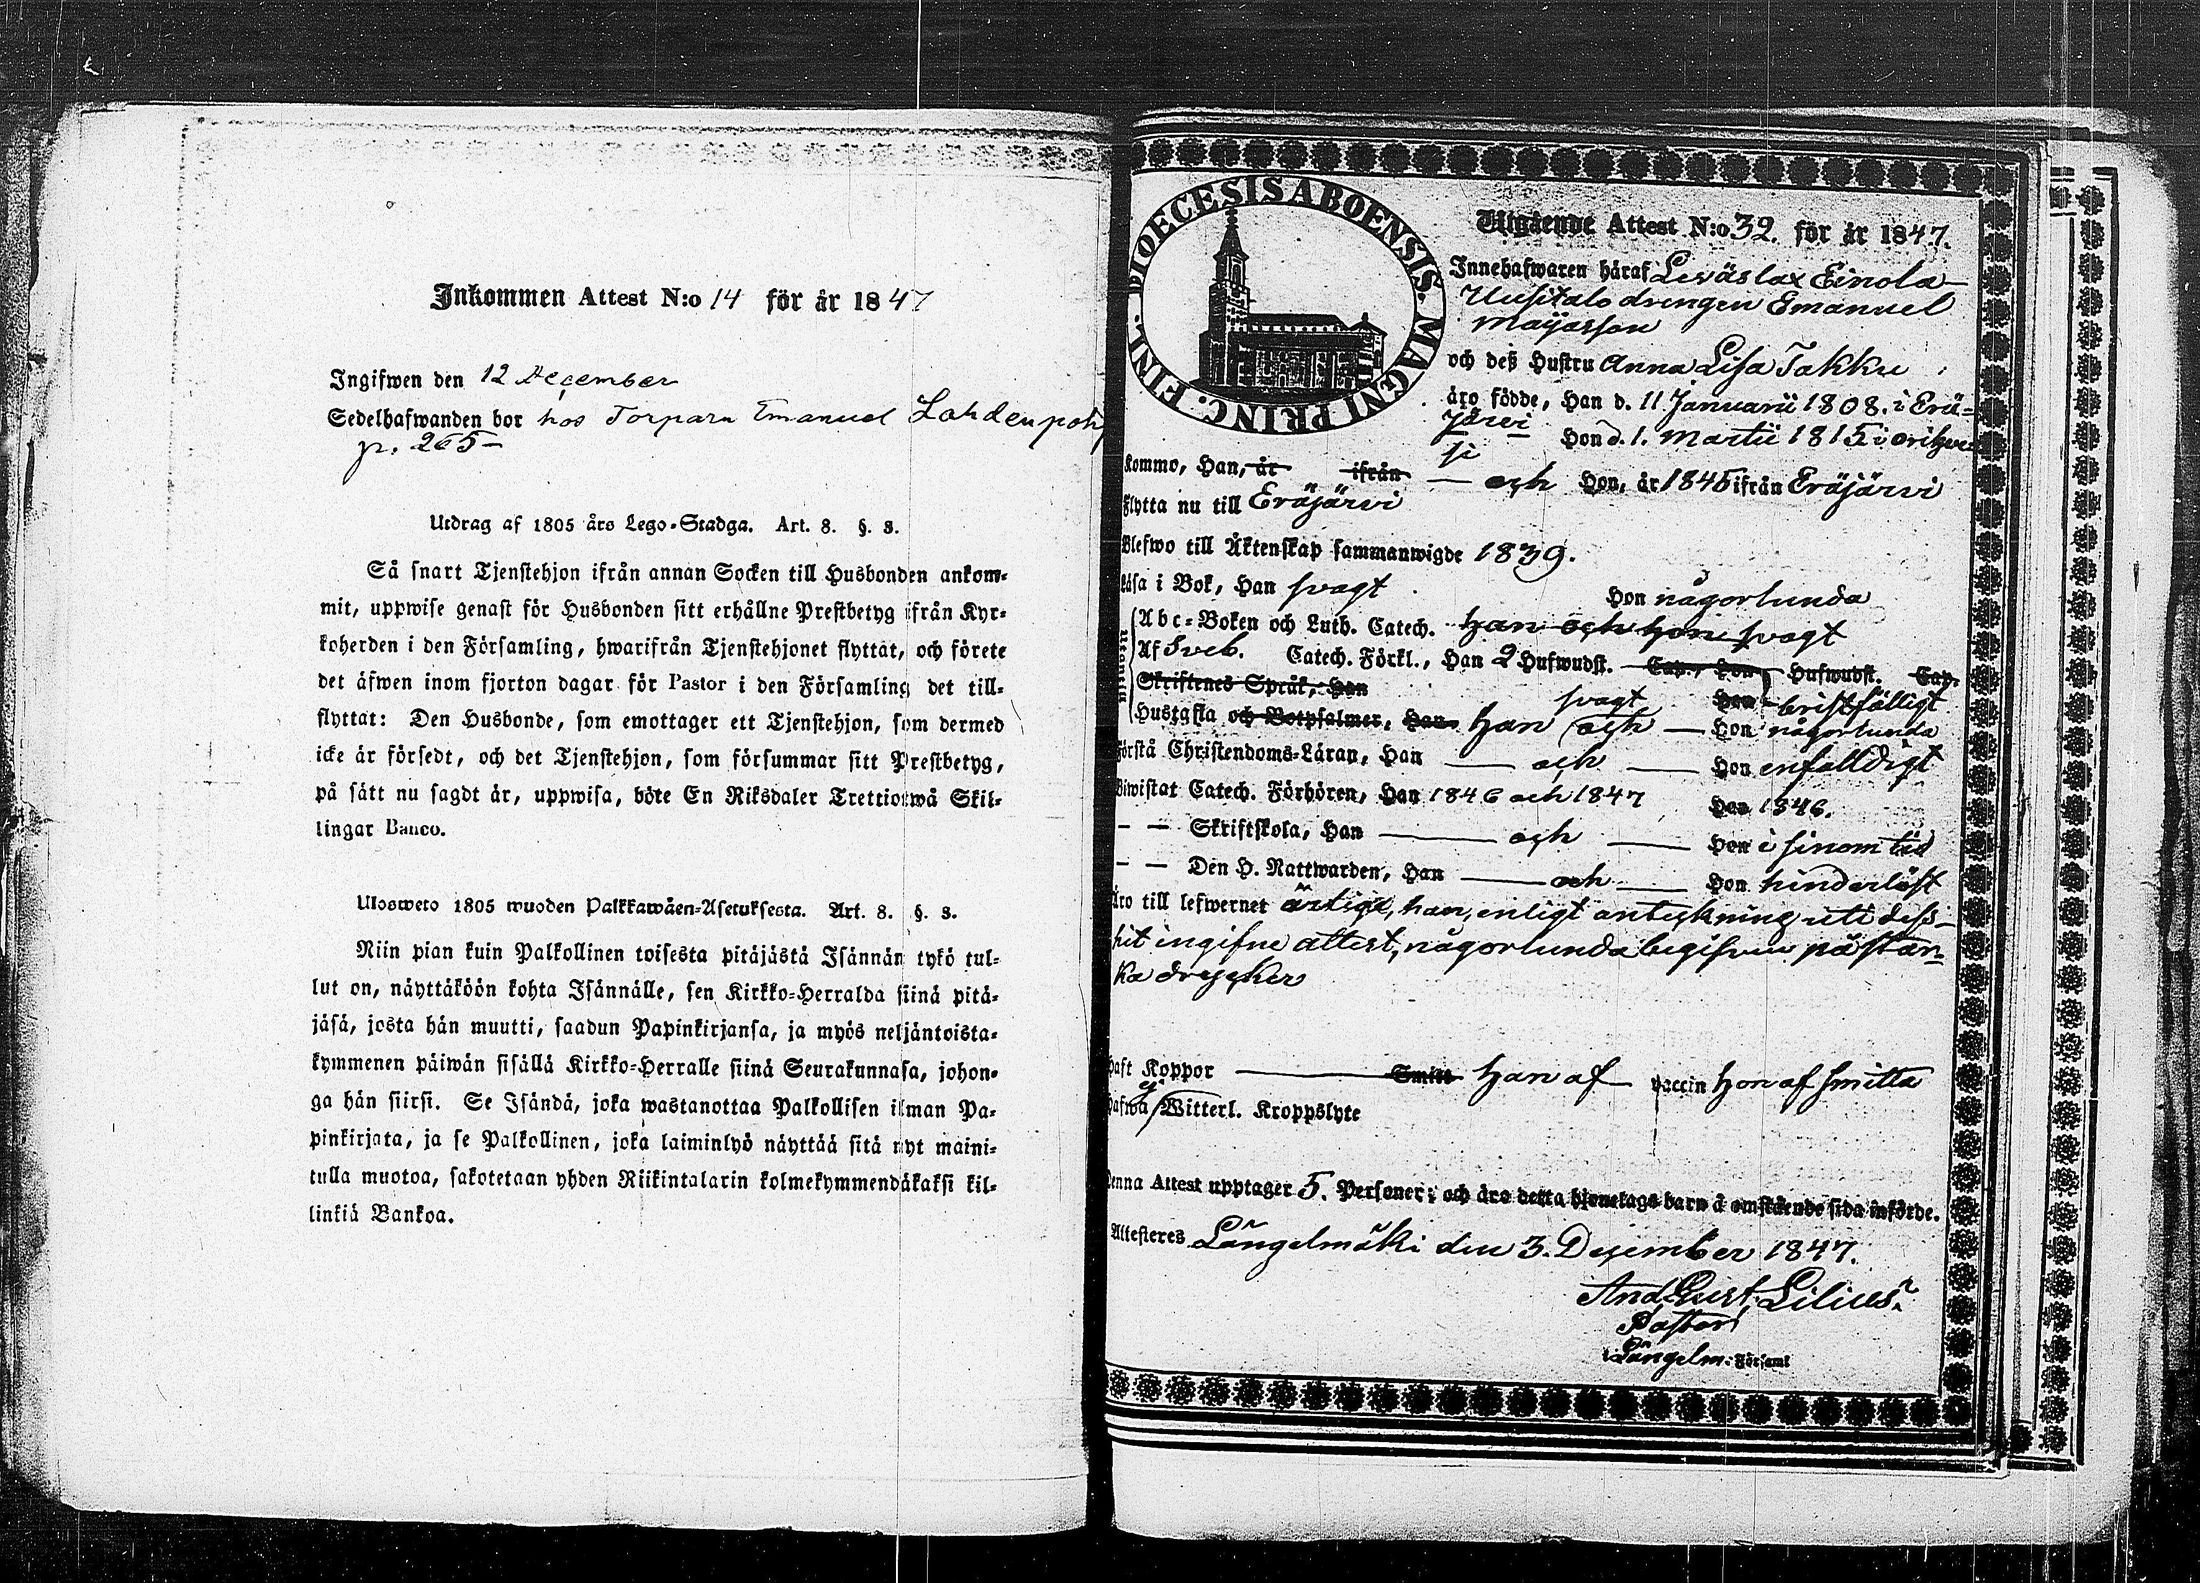 Inkommen Attest N:o 14 för år 1847
Ingifwen den 12 December
Sedelhafwanden bor hos Torparn Emanuel Lahdenpohj
p. 265 –
Utdrag af 1805 års Lego-Stadga. Art. 8. §. 3.
Så snart Tjenstehjon ifrån annan Socken till Husbonden ankom-
mit, uppwise genast för Husbonden sitt erhållne Prestbetyg ifrån Kyr-
koherden i den Församling, hwarifrån Tjenstehjonet flyttat, och förete
det äfwen inom fjorton dagar för Pastor i den Församling det till-
flyttat: Den Husbonde, som emottager ett Tjenstehjon, som dermed
icke är försedt, och det Tjenstehjon, som försummar sitt Prestbetyg,
på sätt nu sagdt är, uppwisa, böte En Riksdaler Trettiotwå Skil-
lingar Banco.
Ulosweto 1805 wuoden Palkkawäen-Asetuksesta. Art. 8. §. 3.
Niin pian kuin Palkollinen toisesta pitäjästä Isännän tykö tul-
lut on, näyttäköön kohta Isännälle, sen Kirkko-Herralda siinä pitä-
jäsä, josta hän muutti, saadun Papinkirjansa, ja myös neljäntoista-
kymmenen päiwän sisällä Kirkko-Herralle siinä Seurakunnasa, johon-
ga hän siirsi. Se Isändä, joka wastanottaa Palkollisen ilman Pa-
pinkirjata, ja se Palkollinen, joka laiminlyö näyttää sitä nyt maini-
tulla muotoa, sakotetaan yhden Riikintalarin kolmekymmendäkaksi kil-
linkiä Bankoa.
DIOECESIS ABOENSIS. MAGNI PRINC. FINL.
Utgående Attest N:o 32. för år 1847.
Innehafwaren häraf Leväslax Einola
Uusitalo drengen Emanuel
Mayasson
och deß Hustru Anna Lisa Takku
äro födde, Han d. 11 Januarii 1808. i Erä-
järvi Hon d. 1. Martii 1815 i Orihves-
si
komme, Han, år ifrån — och Hon, år 1845 ifrån Eräjärvi
flytta nu till Eräjärvi
Blefwo till Äktenskap sammanwigde 1839.
läsa i Bok, Han svagt Hon någorlunda
Abc-Boken och Luth. Catech. Han och Hon svagt
Af Sveb. Catech. Förkl., Han 2 Hufwudst. Cap., Hon Hufwudst. Cap.
Skriftenes Språk, Han svagt Hon bristfälligt
Hustafla och Botpsalmer, Han Han och — Hon någorlunda
Förstå Christendoms-Läran, Han — och — Hon enfalldigt
Biwistat Catech. Förhören, Han 1846 och 1847 Hon 1846.
– – Skriftskola, Han — och — Hon i sinom tid
– – Den H. Nattwarden, Han — och — Hon hinderlöst
Äro till lefwernet ärlige, han, enligt anteckning uti dess
hit ingifne attest, någorlunda begifven på star-
ka drycker
haft Koppor — Smitt Han af — vaccin Hon af smitta
hafwa ej Witterl. Kroppslyte
Denna Attest upptager 5. Personer; och äro detta hjonelags barn å omstående sida införde.
Attesteres Längelmäki den 3. December 1847.
And. Gust. Lilius.
Pastor i
Längelm. Församl